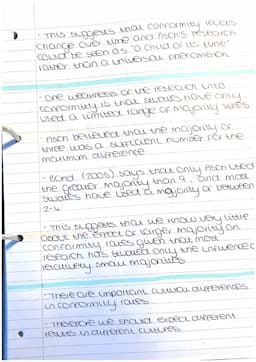 - This suggests that conformity levels
change over time and Asch's research
could be seen as 'a child of its time'
rather than a universal phenomenon
- One weakness of the research into
conformity is that studies have only
used a limited range of majority sizes
- Asch believed that the majority of
three was a sufficient number for the
maximum difference
- Bond (2005) says that only Asch used
the greater majority than 9, and most
studies have used a majority of between
2-4.
- This suggests that we know very little
about the effect of larger majority on
conformity rates given that most
research has studied only the influence of
relatively small majorities
- There are important cultural differences
in conformity rates
- Therefore we should expect different
results in different cultures